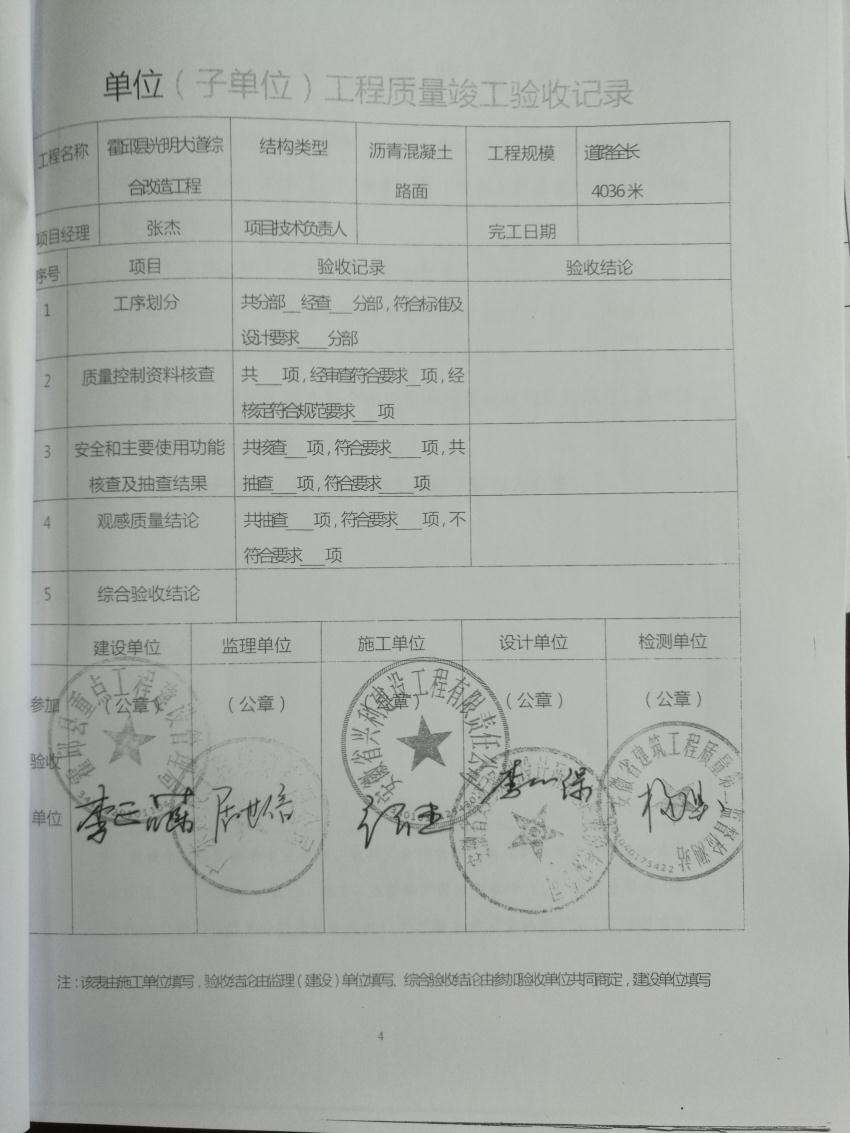 单位（子单位）工程质量竣工验收记录
工程名称 霍邱县光明大道综合改造工程 结构类型 沥青混凝土路面 工程规模 道路全长4036米
项目经理 张杰 项目技术负责人 完工日期
序号 项目 验收记录 验收结论
1 工序划分 共分部__经查___分部，符合标准及
设计要求____分部
2 质量控制资料核查 共___项，经审查符合要求__项，经
核定符合规范要求___项
3 安全和主要使用功能 共核查___项，符合要求____项，共
核查及抽查结果 抽查___项，符合要求____项
4 观感质量结论 共抽查___项，符合要求___项，不
符合要求___项
5 综合验收结论
参加验收单位
建设单位 监理单位 施工单位 设计单位 检测单位
（公章） （公章） （公章） （公章） （公章）
霍邱县重点工程建设管理局
安徽省兴利建设工程有限责任公司
安徽省建筑工程质量第一监督检测站
注：该表由施工单位填写，验收结论由监理（建设）单位填写、综合验收结论由参加验收单位共同商定，建设单位填写
4